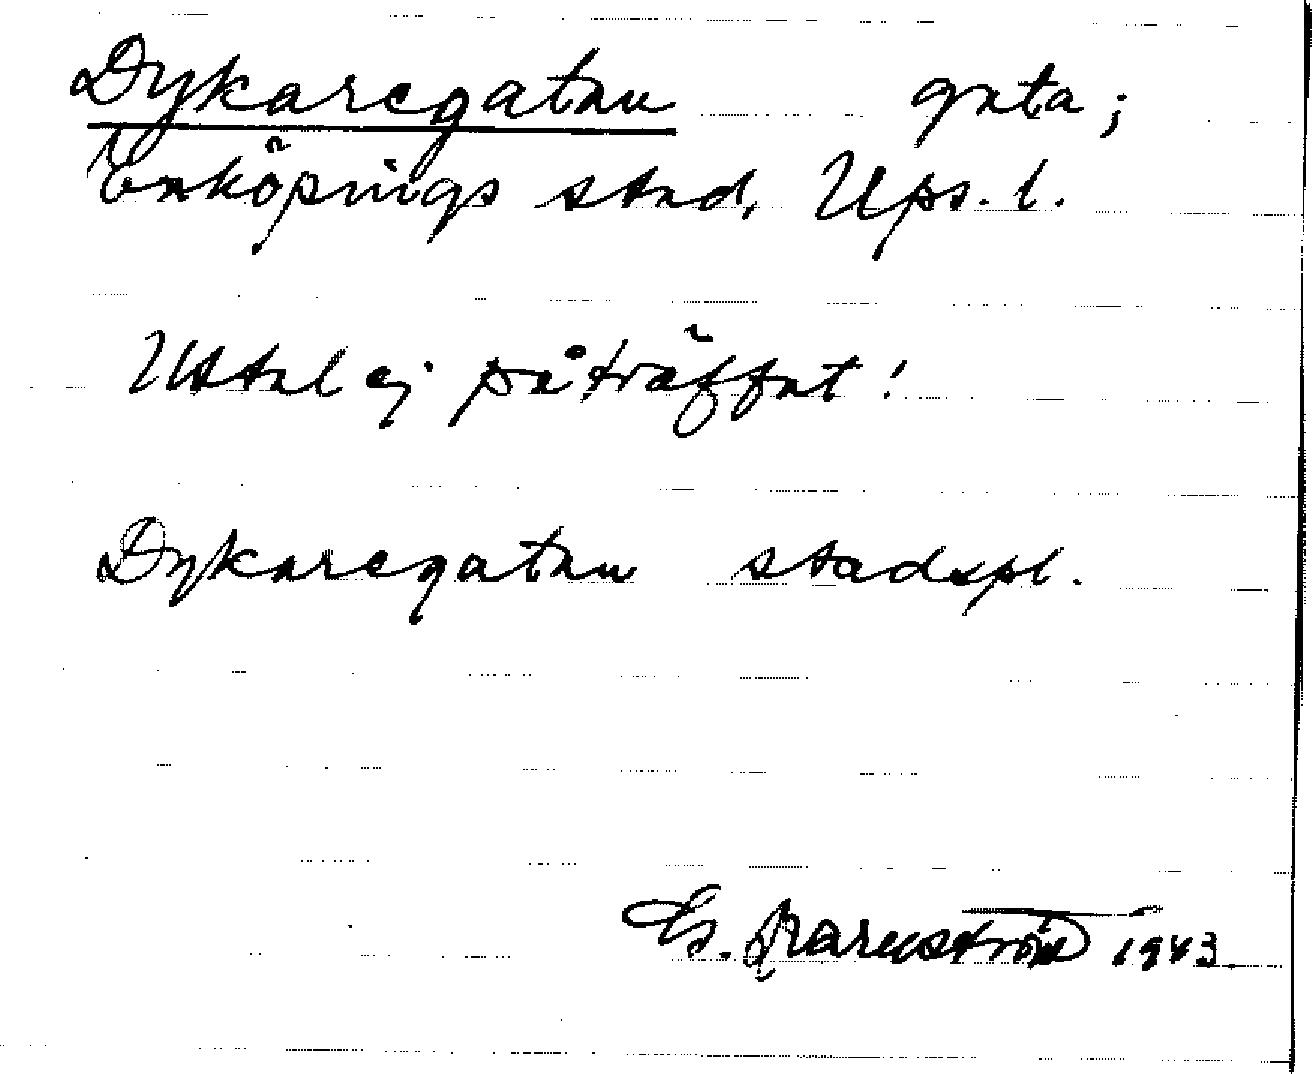 Dykaregatan gata;
Enköpings stad, Ups. l.
Uttal ej påträffat!
Dykaregatan stadspl.
1943.